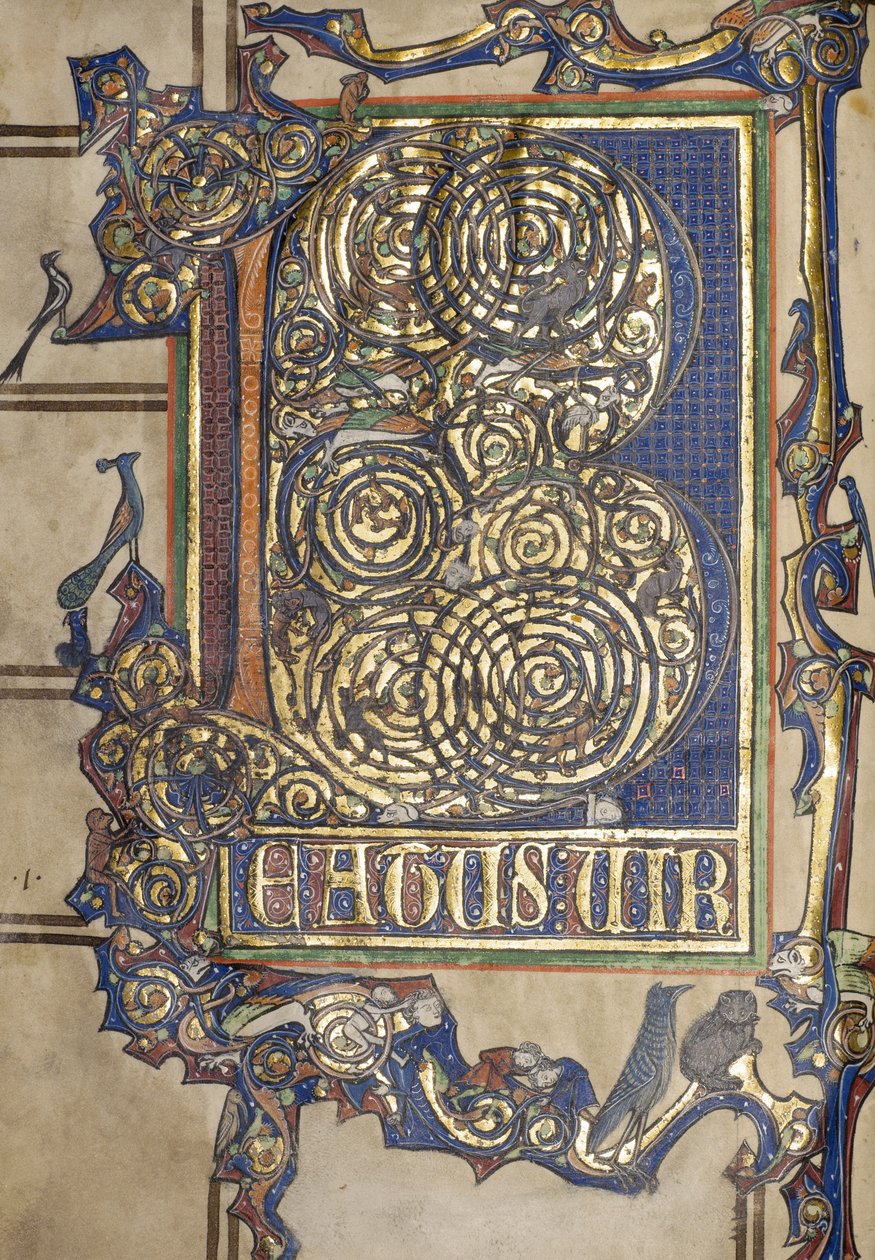 B
EATUS UIR
·1·